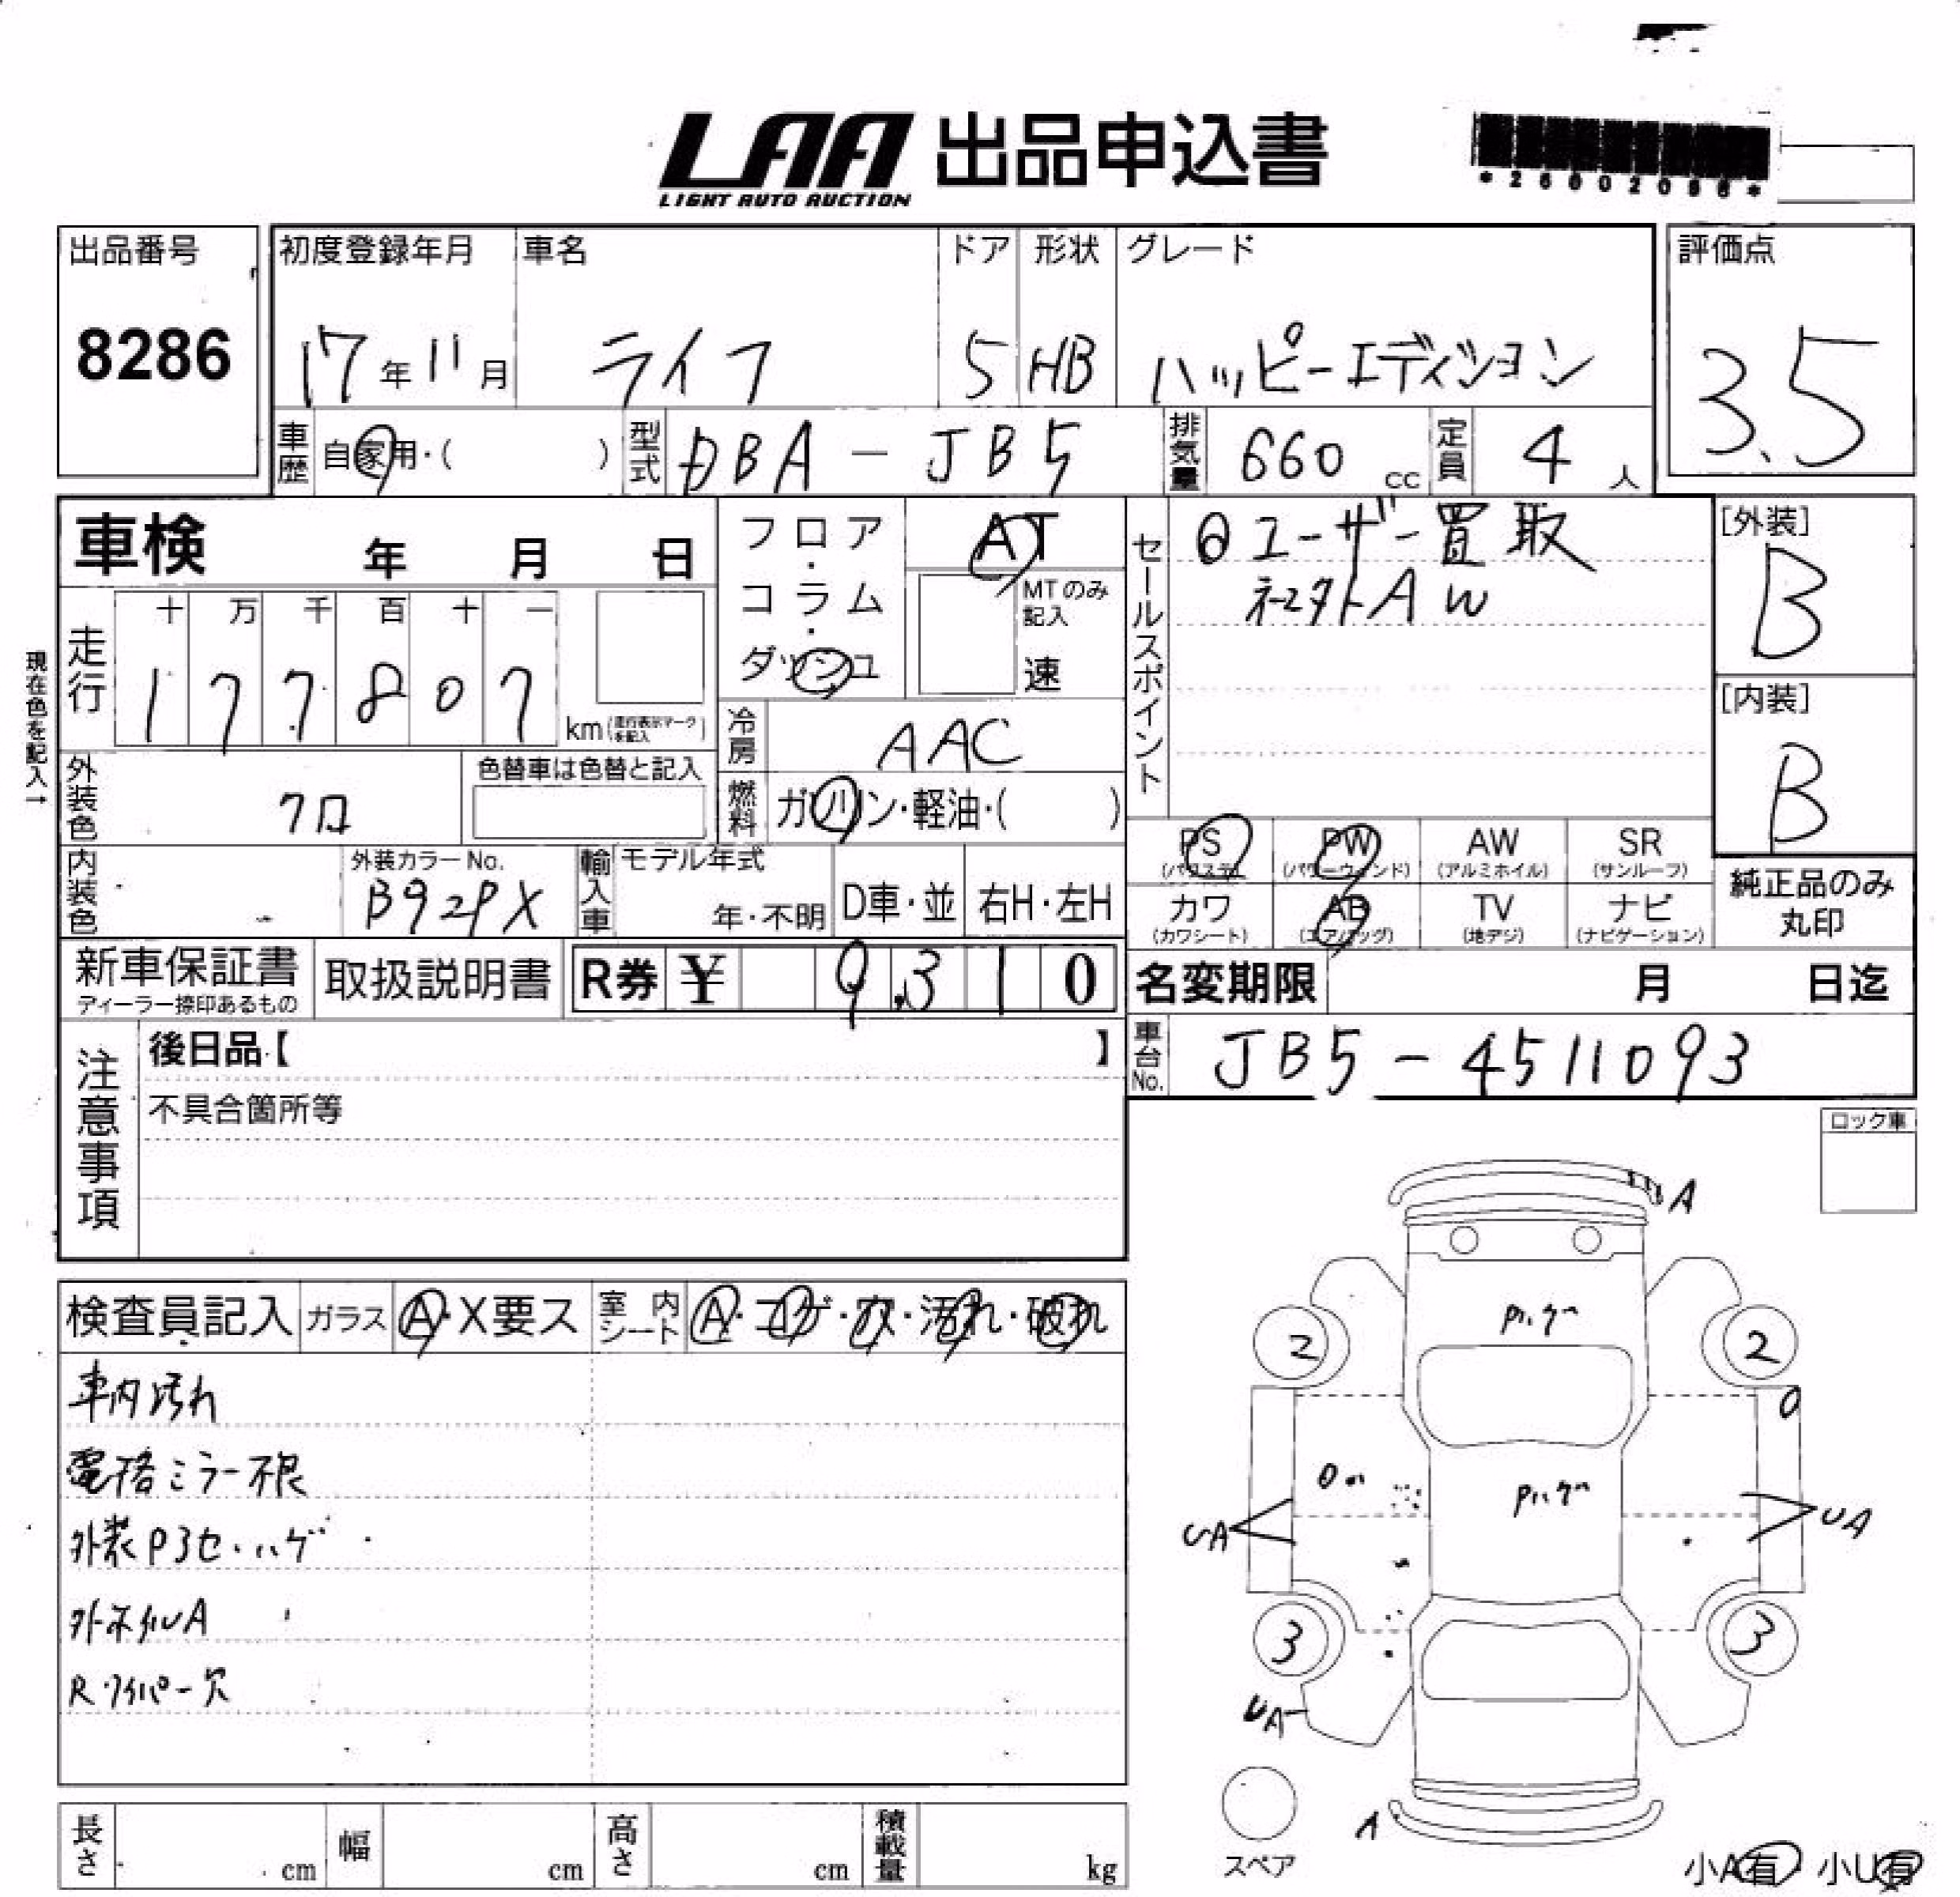 LAA 出品申込書
LIGHT AUTO AUCTION
*26002096*
出品番号
8286
初度登録年月 車名 ドア 形状 グレード
17年11月 ライフ 5 HB ハッピーエディション
評価点
3.5
車歴 自家用・( ) 型式 DBA-JB5 排気量 660 cc 定員 4 人
車検 年 月 日
フロア・コラム・ダッシュ
AT
MTのみ記入
速
セールスポイント
◎ユーザー買取
社外AW
[外装]
B
[内装]
B
現在色を記入→
走行
十 万 千 百 十 一
1 7 7 8 0 7
km(走行表示マークを記入)
冷房 AAC
燃料 ガソリン・軽油・( )
外装色 クロ
色替車は色替と記入
内装色
外装カラーNo.
B92PX
輸入車 モデル年式
年・不明
D車・並 右H・左H
PS (パワステ)
PW (パワーウィンド)
AW (アルミホイル)
SR (サンルーフ)
カワ (カワシート)
AB (エアバッグ)
TV (地デジ)
ナビ (ナビゲーション)
純正品のみ丸印
新車保証書
ディーラー捺印あるもの
取扱説明書
R券 ¥ 9,310
名変期限 月 日迄
注意事項
後日品【 】
不具合箇所等
車台No. JB5-4511093
ロック車
検査員記入 ガラス A・X要ス 室内シート A・コゲ・穴・汚れ・破れ
車内汚れ
電格ミラー不良
外装Pヨセ・ハゲ
外ホイルA
Rワイパー欠
A
Pハゲ
2
2
Pハゲ
UA
UA
3
3
UA
A
スペア
小A有 小U有
長さ cm 幅 cm 高さ cm 積載量 kg